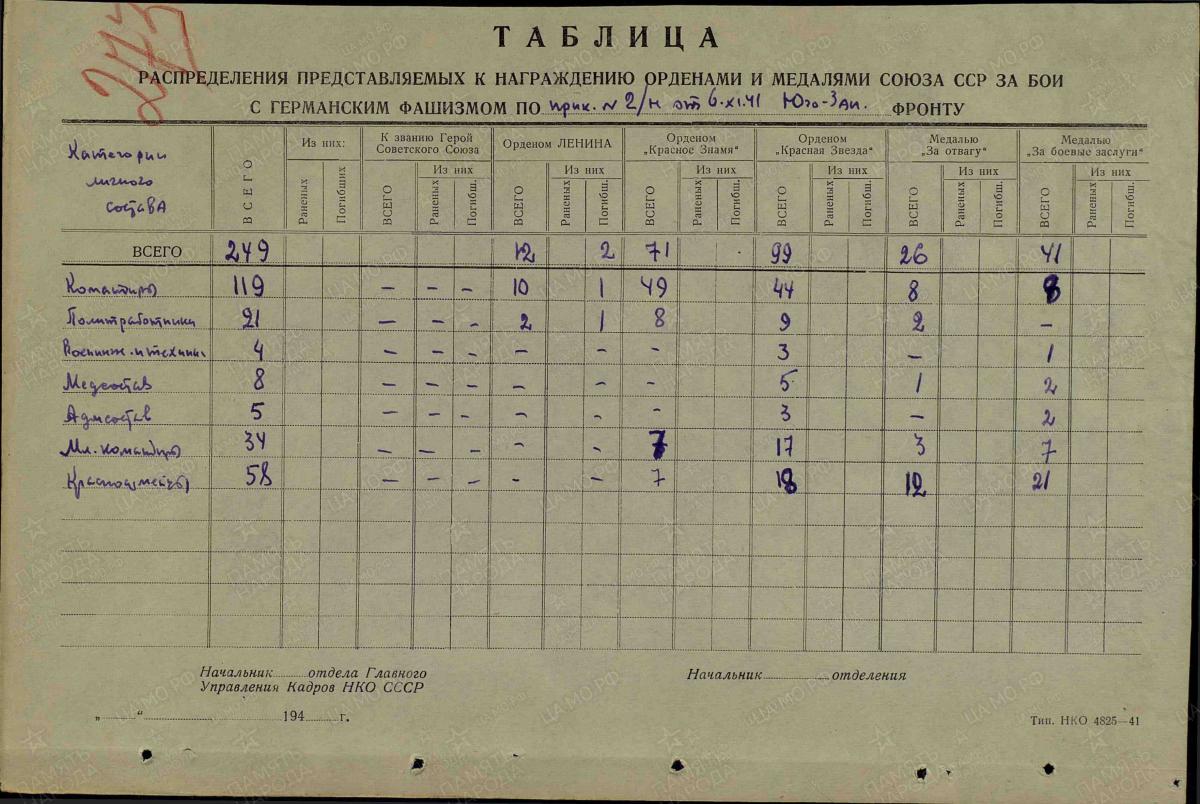 243
ТАБЛИЦА
РАСПРЕДЕЛЕНИЯ ПРЕДСТАВЛЯЕМЫХ К НАГРАЖДЕНИЮ ОРДЕНАМИ И МЕДАЛЯМИ СОЮЗА ССР ЗА БОИ
С ГЕРМАНСКИМ ФАШИЗМОМ ПО прик. № 2/н от 6.XI.41 Юго-Зап. ФРОНТУ
Категории личного состава | ВСЕГО | Из них: Раненых | Погибших | К званию Герой Советского Союза ВСЕГО | Из них Раненых | Погибш. | Орденом ЛЕНИНА ВСЕГО | Из них Раненых | Погибш. | Орденом „Красное Знамя" ВСЕГО | Из них Раненых | Погибш. | Орденом „Красная Звезда" ВСЕГО | Из них Раненых | Погибш. | Медалью „За отвагу" ВСЕГО | Из них Раненых | Погибш. | Медалью „За боевые заслуги" ВСЕГО | Из них Раненых | Погибш.
ВСЕГО 249 12 2 71 99 26 41
Командиры 119 – – – 10 1 49 44 8 8
Политработники 21 – – – 2 1 8 9 2 –
Военинж. и техники 4 – – – – – – 3 – 1
Медсостав 8 – – – – – – 5 1 2
Адмсостав 5 – – – – – – 3 – 2
Мл. командиры 34 – – – – – 7 17 3 7
Красноармейцы 58 – – – – – 7 18 12 21
Начальник отдела Главного
Управления Кадров НКО СССР
Начальник отделения
„ " 194 г.
Тип. НКО 4825—41
ПАМЯТЬ НАРОДА
ЦАМО.РФ